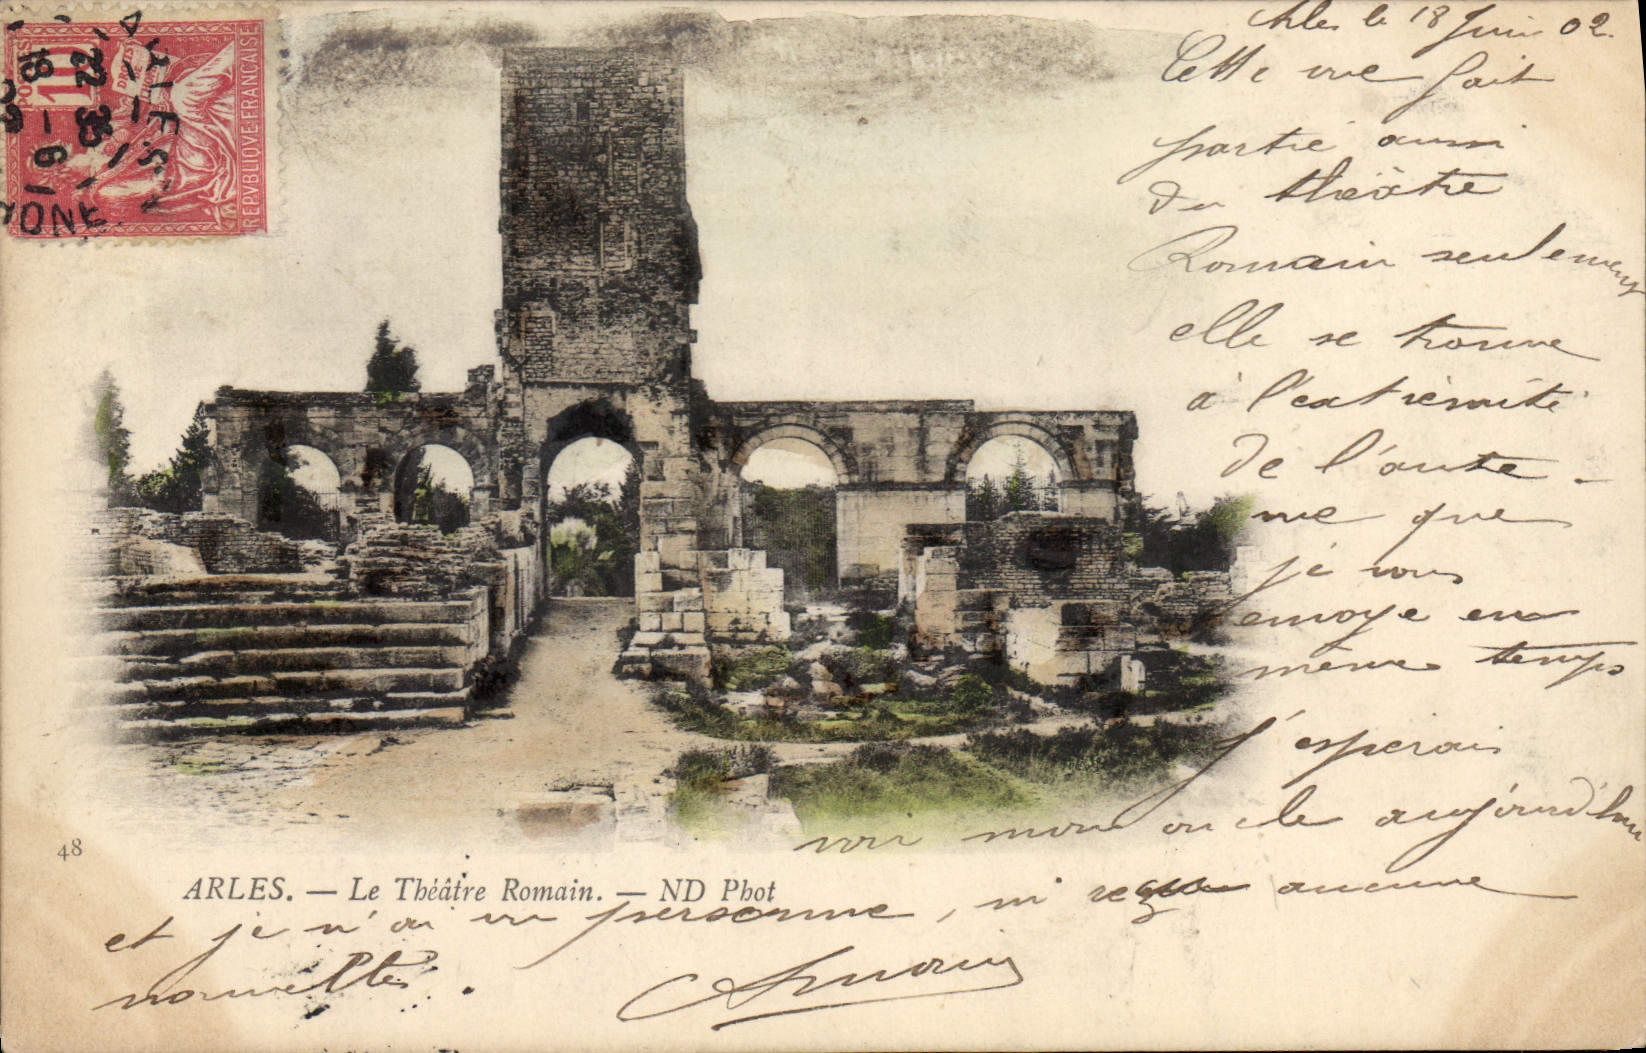 POSTES
10
DROITS
DE
REPVBLIQVE FRANÇAISE
ARLES
22 35
18 - 6
02
RONE
Arles le 18 Juin 02.
Cette vue fait
partie aussi
du théâtre
Romain seulement
elle se trouve
à l'extrémité
de l'autre -
me que
je vous
envoye en
même temps
J'espérais
voir mon oncle aujourd'hui
48
ARLES. — Le Théâtre Romain. — ND Phot
et je n'ai vu personne, ni reçu aucune
nouvelles.